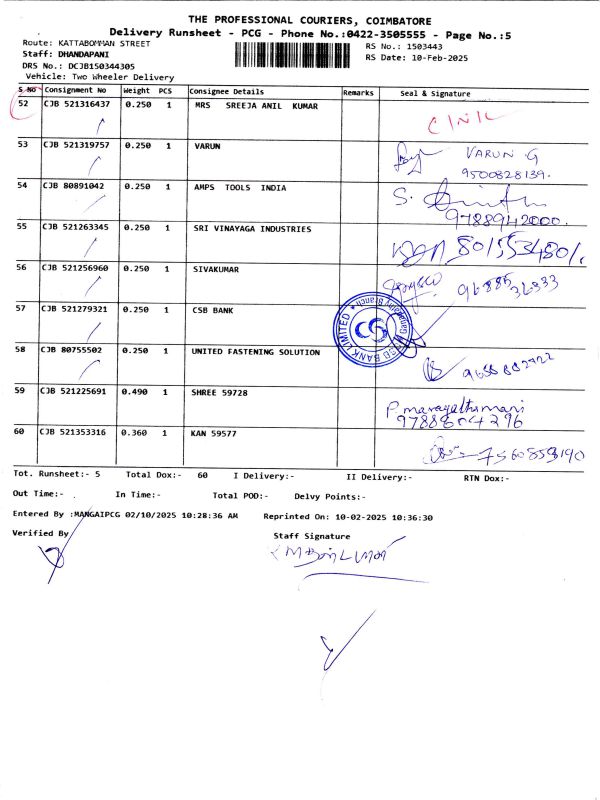 THE PROFESSIONAL COURIERS, COIMBATORE
Delivery Runsheet - PCG - Phone No.:0422-3505555 - Page No.:5
Route: KATTABOMMAN STREET
RS No.: 1503443
Staff: DHANDAPANI
RS Date: 10-Feb-2025
DRS No.: DCJB150344305
Vehicle: Two Wheeler Delivery
S No Consignment No Weight PCS Consignee Details Remarks Seal & Signature
52 CJB 521316437 0.250 1 MRS SREEJA ANIL KUMAR
53 CJB 521319757 0.250 1 VARUN VARUN G
9500828139.
54 CJB 80891042 0.250 1 AMPS TOOLS INDIA S.
9788942000.
55 CJB 521263345 0.250 1 SRI VINAYAGA INDUSTRIES
56 CJB 521256960 0.250 1 SIVAKUMAR
57 CJB 521279321 0.250 1 CSB BANK
CSB BANK LIMITED
58 CJB 80755502 0.250 1 UNITED FASTENING SOLUTION
59 CJB 521225691 0.490 1 SHREE 59728
60 CJB 521353316 0.360 1 KAN 59577
7560858190
Tot. Runsheet:- 5 Total Dox:- 60 I Delivery:- II Delivery:- RTN Dox:-
Out Time:- In Time:- Total POD:- Delvy Points:-
Entered By :MANGAIPCG 02/10/2025 10:28:36 AM Reprinted On: 10-02-2025 10:36:30
Verified By
Staff Signature